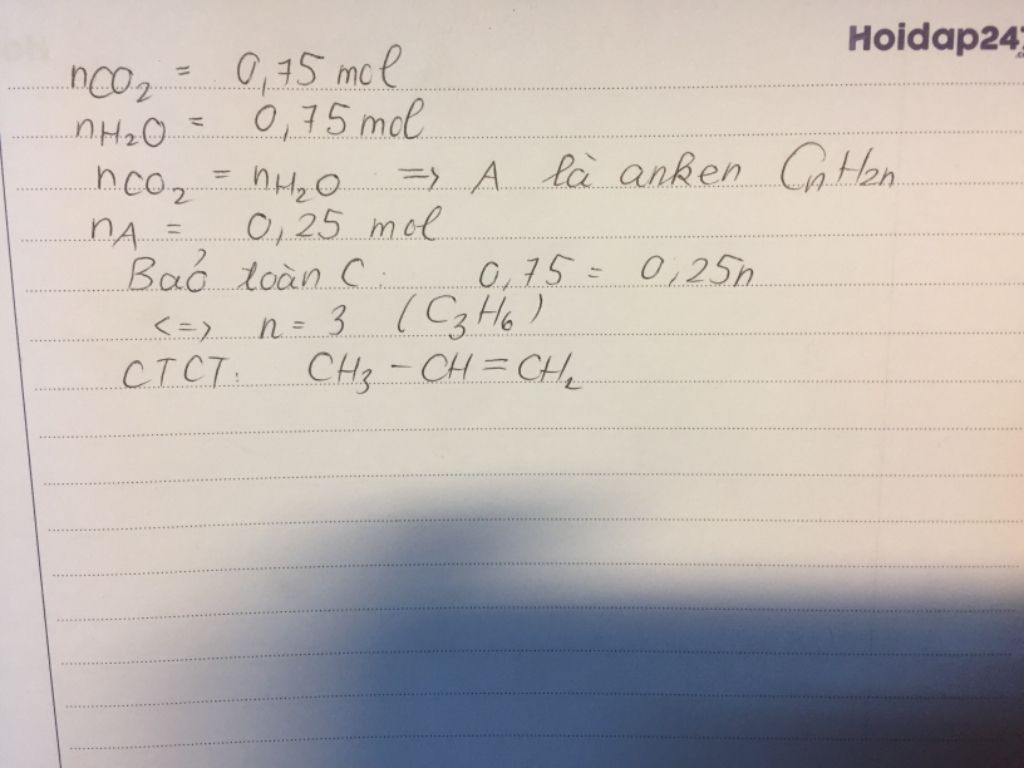 Hoidap247
nCO₂ = 0,75 mol
nH₂O = 0,75 mol
nCO₂ = nH₂O => A là anken CnH2n
nA = 0,25 mol
Bảo toàn C: 0,75 = 0,25n
<=> n = 3 (C₃H₆)
CTCT: CH₃ – CH = CH₂